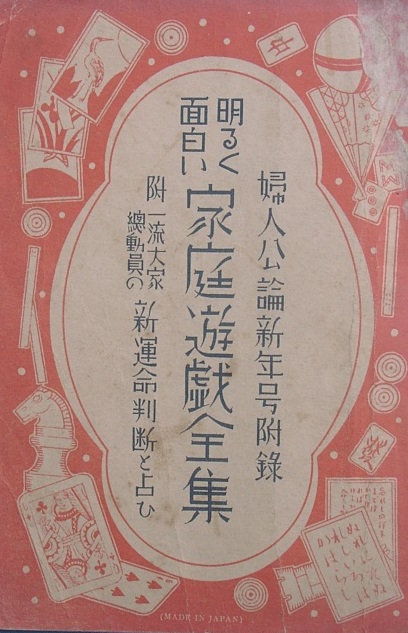 婦人公論新年号附錄
明るく
面白い
家庭遊戯全集
附
一流大家
總動員の
新運命判断と占ひ
中
發
(MADE IN JAPAN)